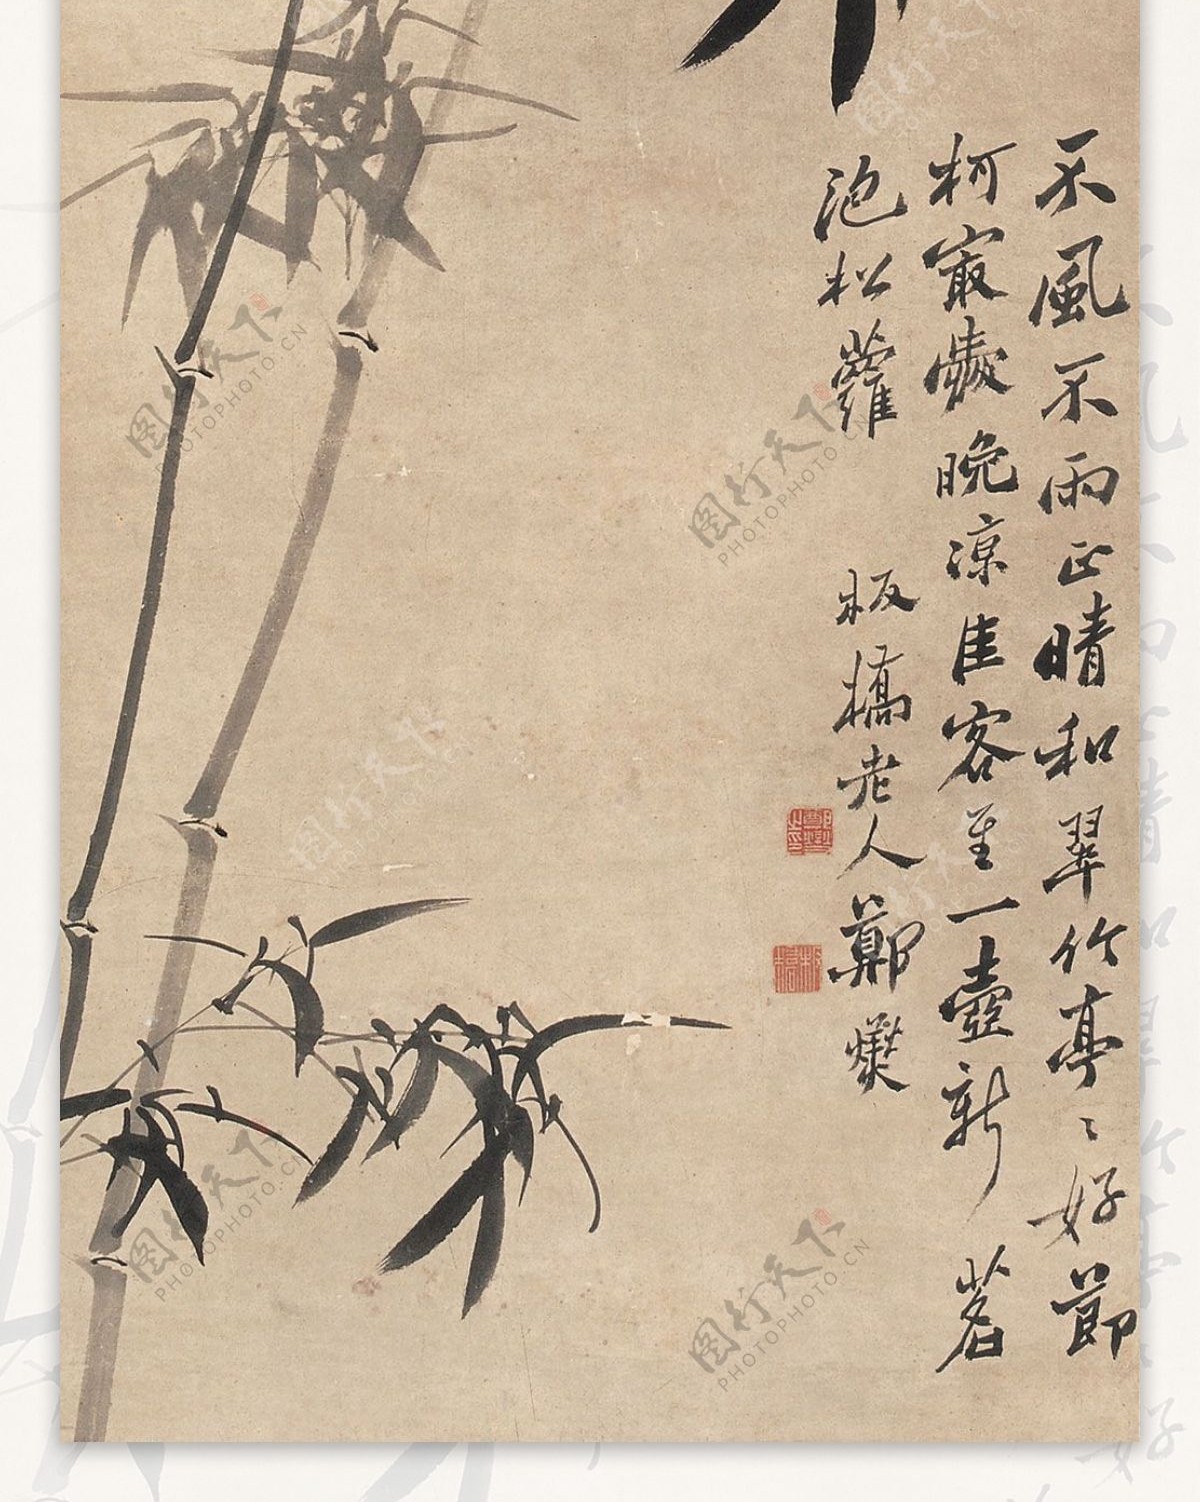 不風不雨正晴和翠竹亭〻好節
柯最愛晚涼佳客至一壺新茗
泡松蘿
板橋老人鄭燮
图行天下
PHOTOPHOTO.CN